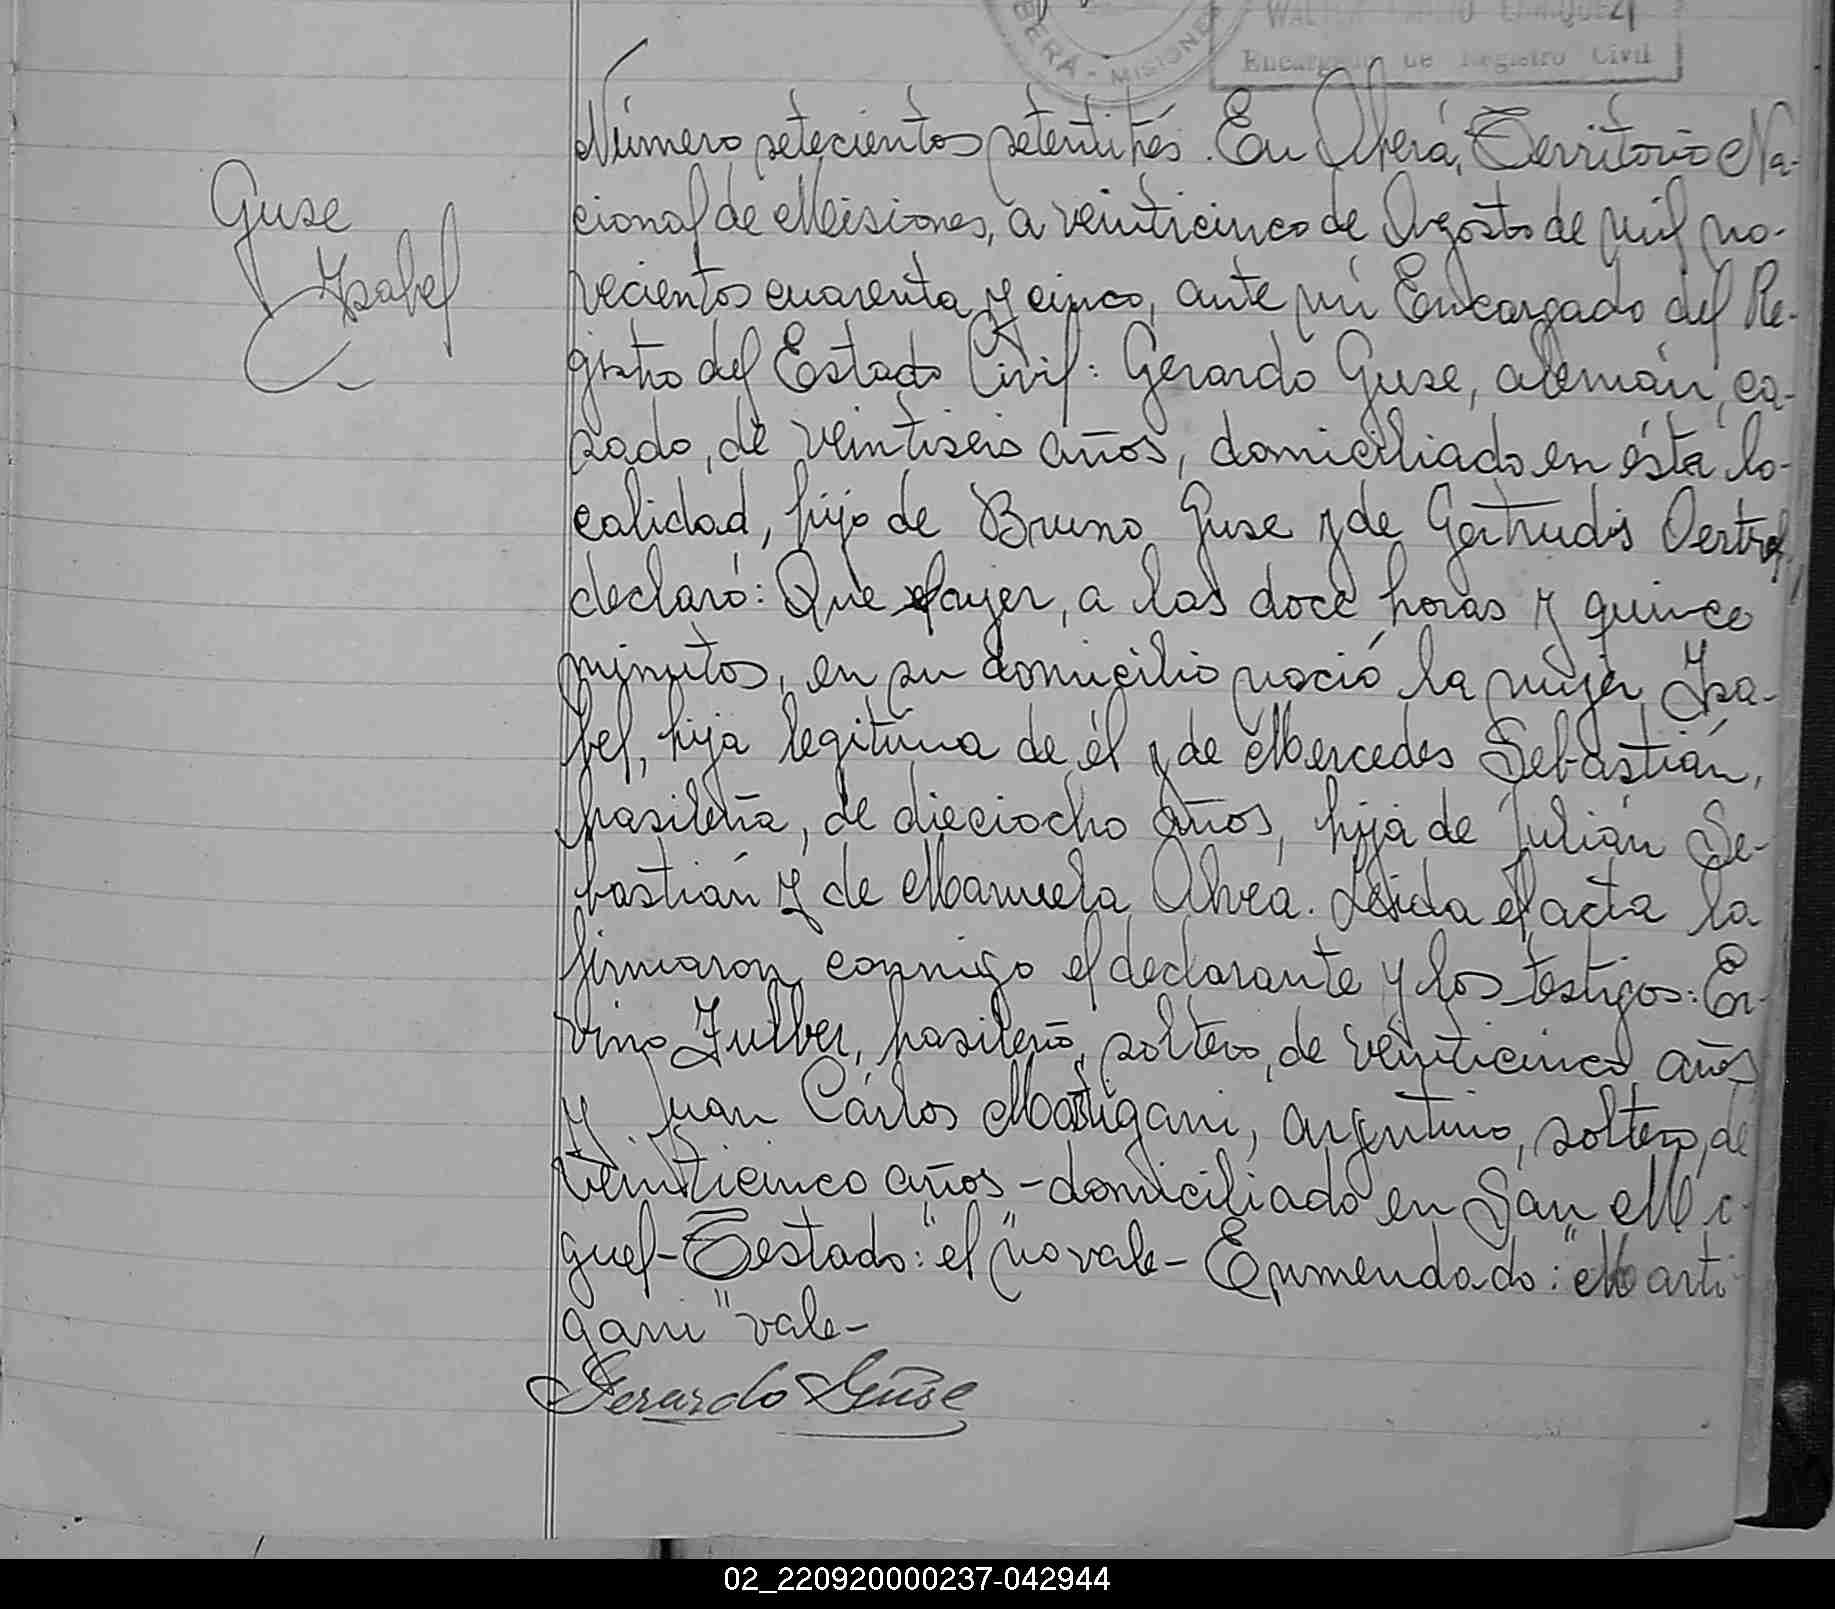 BERÁ - MISIONE
Encargado de Registro Civil
Guse
Isabel
Número setecientos setentitrés. En Oberá, Territorio Na-
cional de Misiones, a veinticinco de Agosto de mil no-
vecientos cuarenta y cinco, ante mí Encargado del Re-
gistro del Estado Civil: Gerardo Guse, alemán, ca-
sado, de veintiseis años, domiciliado en ésta lo-
calidad, hijo de Bruno Guse y de Gertrudis Oertel,
declaró: Que el ayer, a las doce horas y quince
minutos, en su domicilio nació la mujer Isa-
bel, hija legitima de él y de Mercedes Sebastián,
brasileña, de dieciocho años, hija de Julián Se-
bastián y de Manuela. Leida el acta la
firmaron conmigo el declarante y los testigos: Er-
vino Zulber, brasileño, soltero, de veinticinco años
y Juan Cárlos Martigani, argentino, soltero, de
veinticinco años - domiciliado en San Mi-
guel - Testado: "el" no vale - Enmendado: "Marti
gani" vale -
Gerardo Guse
02_220920000237-042944